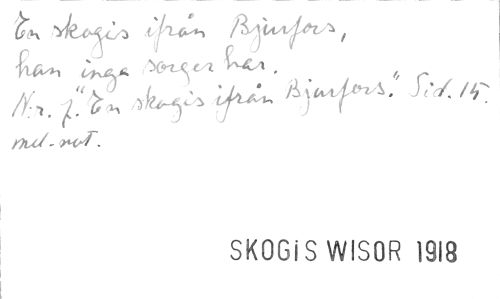 En skogis ifrån Bjurfors,
han inga sorger har.
N:r. 7. "En skogis ifrån Bjurfors." Sid. 15.
mel-not.
SKOGiS WISOR 1918